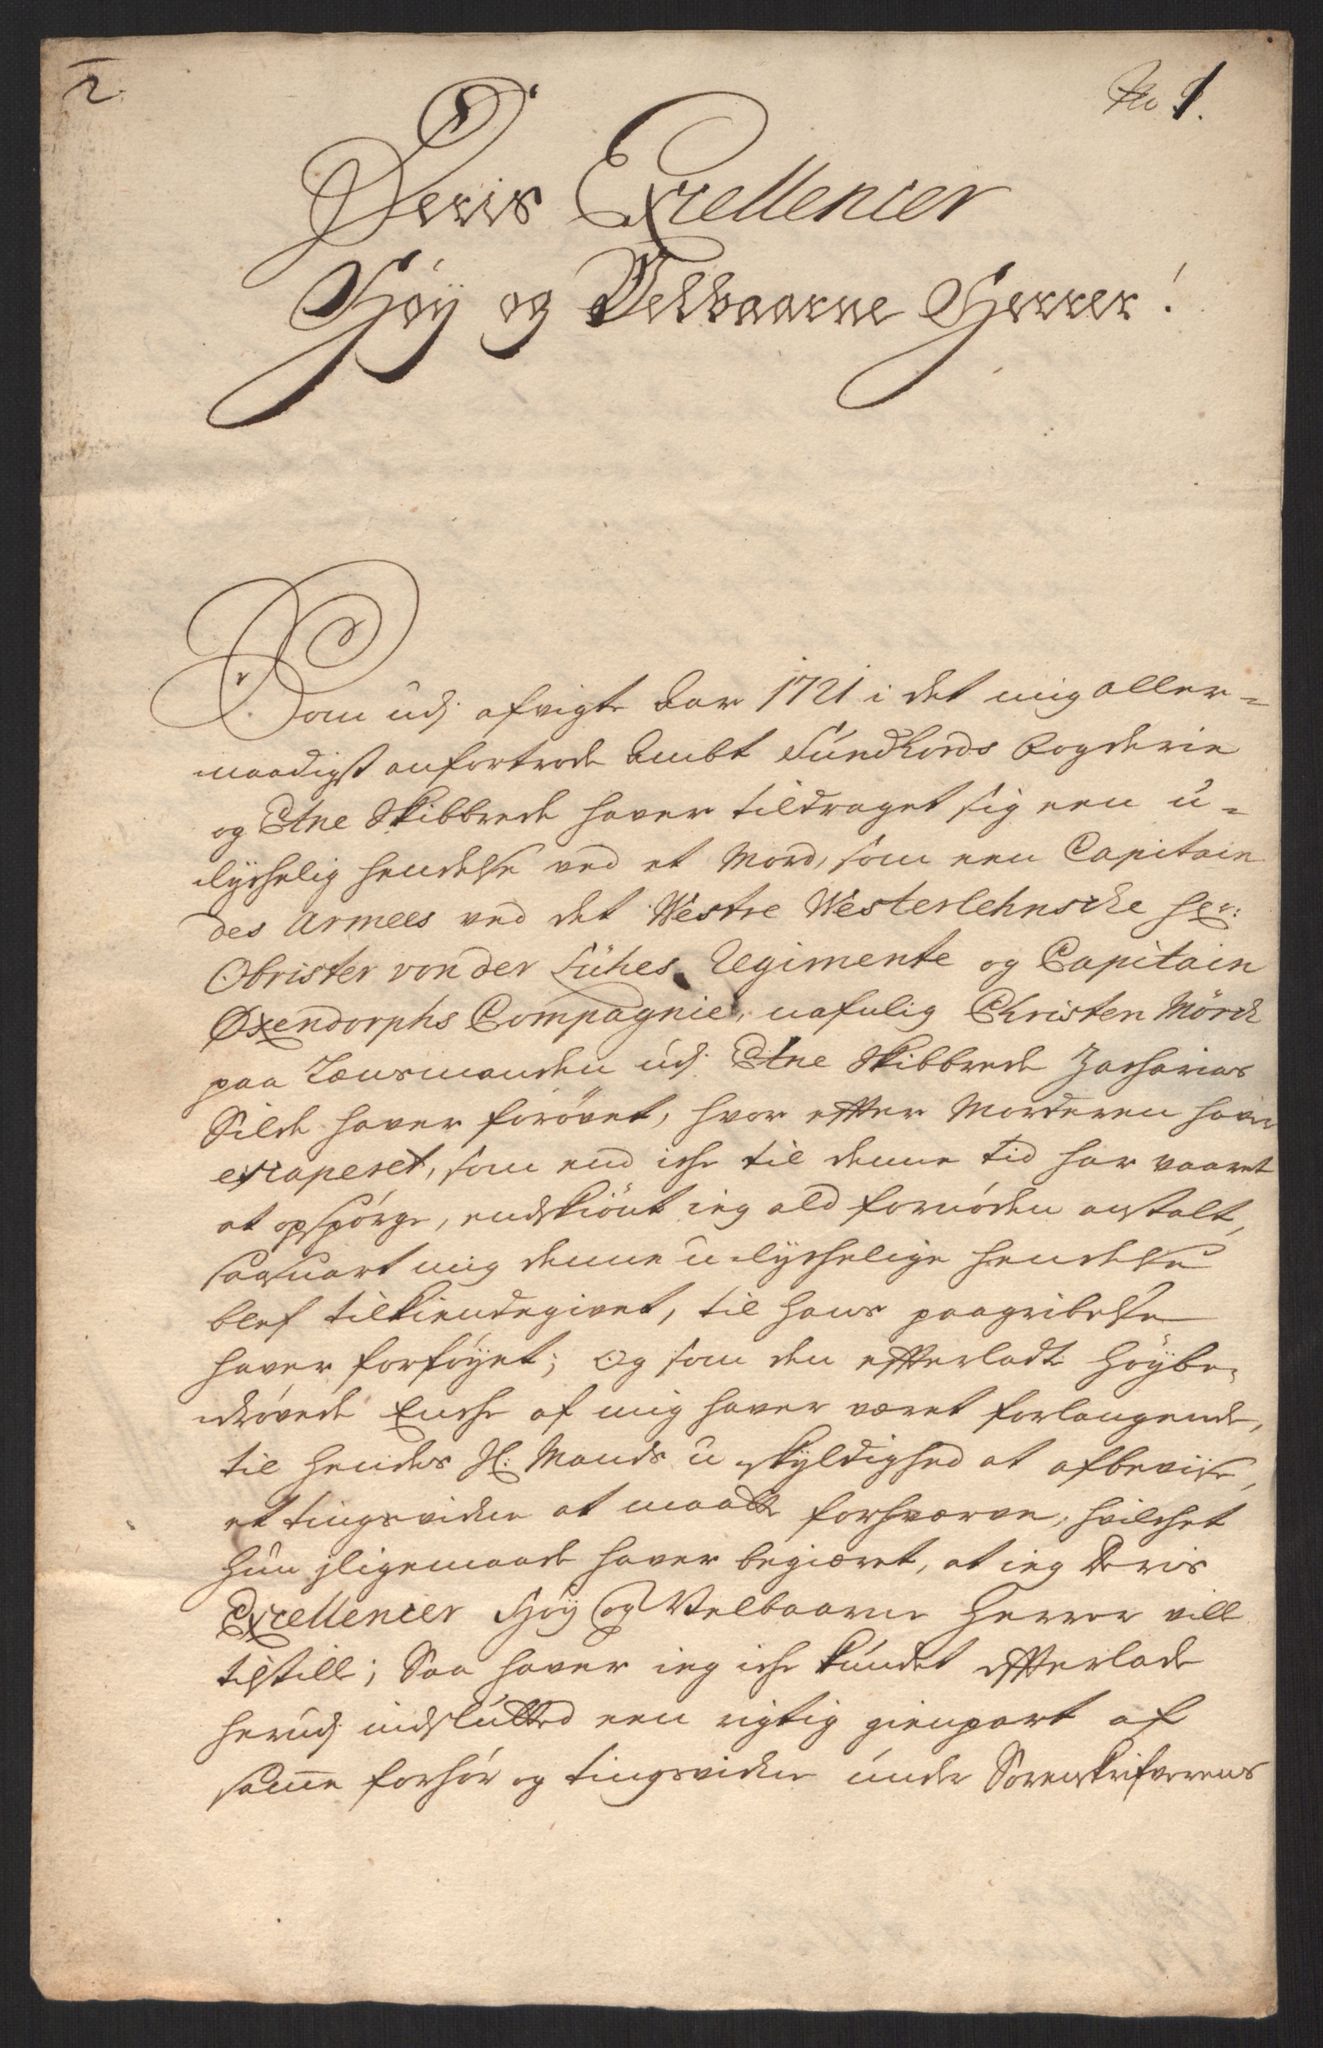 2.
No 1.
Deris Excellencier
Høy og Velbaarne Herrer!
Som udj afvigte Aar 1721 i det mig aller-
naadigst anfortrode Ambt Sundhords Fogderie
og Etne Skibbrede haver tildraget sig een u-
lychelig hendelse ved et Mord, som een Capitain
des Armees ved det Westre Westerlehnsche her:
Obrister von der Lühes Regimente og Capitain
Oxendorphs Compagnie, nafnlig Christen Mörch
paa Lænsmanden udj Etne Skibbrede Zacharias
Silde haver forøvet, hvor effter Morderen haver
escaperet, som end iche til denne tid har vaaret
at opspörge, endskiönt ieg ald fornøden anstalt,
saasnart mig denne ulychelige hendelse
blef tilkiendegivet, til hans paagribelse
haver forføyet; Og som den effterladte Höybe-
drövede Enche af mig haver været forlangende,
til hendes Sl: Mands uskyldighed at afbevise,
et tingsvidne at maatte forhværve, hvilchet
hun jligemaade haver begiæret, at ieg Deris
Excellencier Høy og Velbaarne Herrer vill
tilstille; Saa haver ieg iche kundet effterlade
herudj indslutted een rigtig gienpart af
samme forhør og tingsvidne under Sorenskrifverens